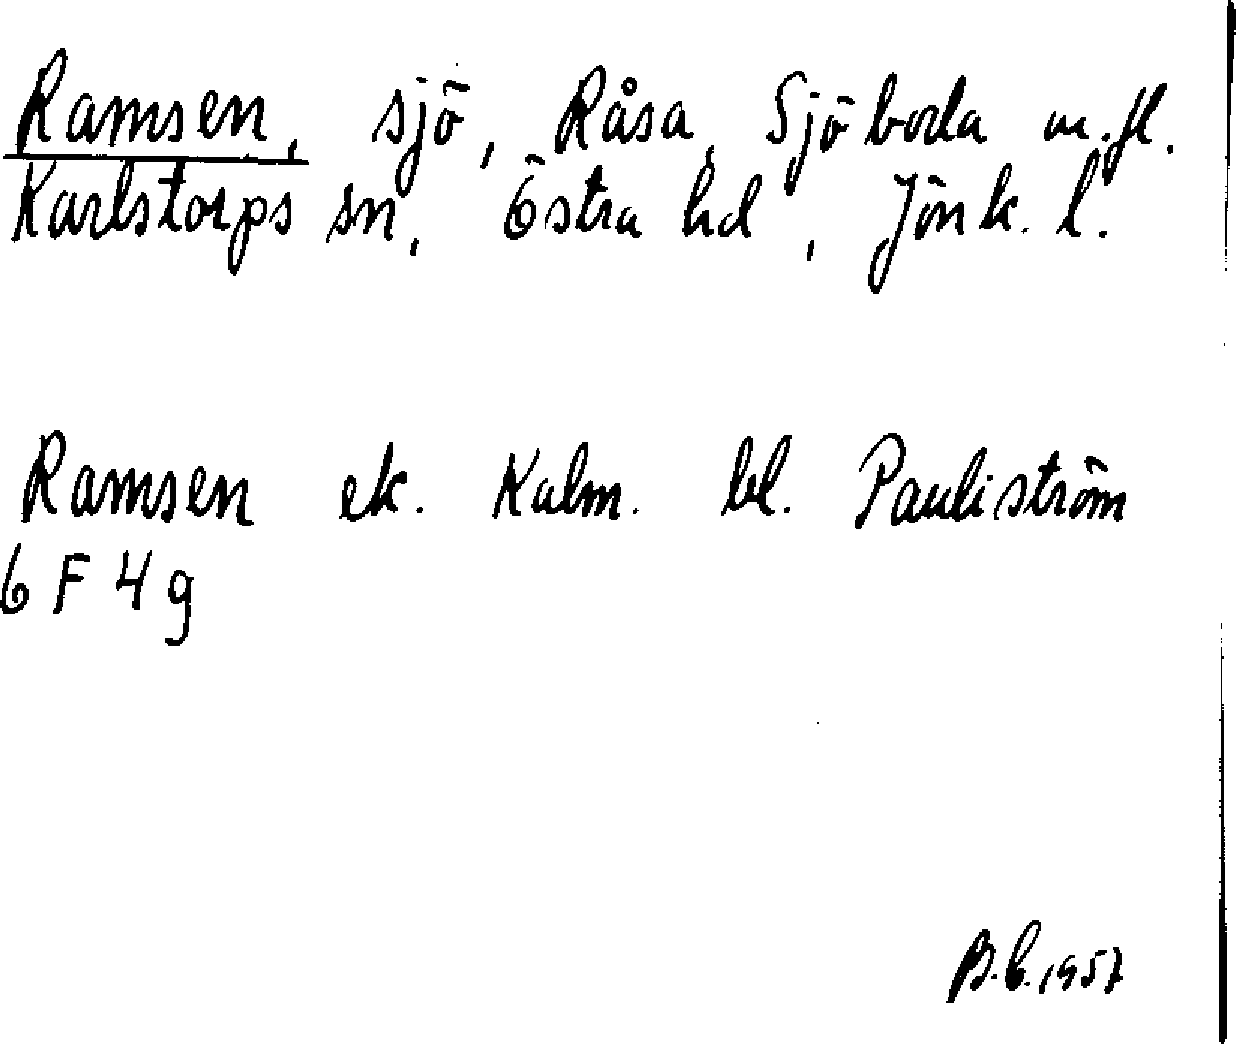 Ramsen, sjö, Råsa, Sjöboda m.fl.
Karlstorps sn, Östra hd, Jönk. l.
Ramsen ek. Kalm. bl. Pauliström
6 F 4 g
B.C. 1957